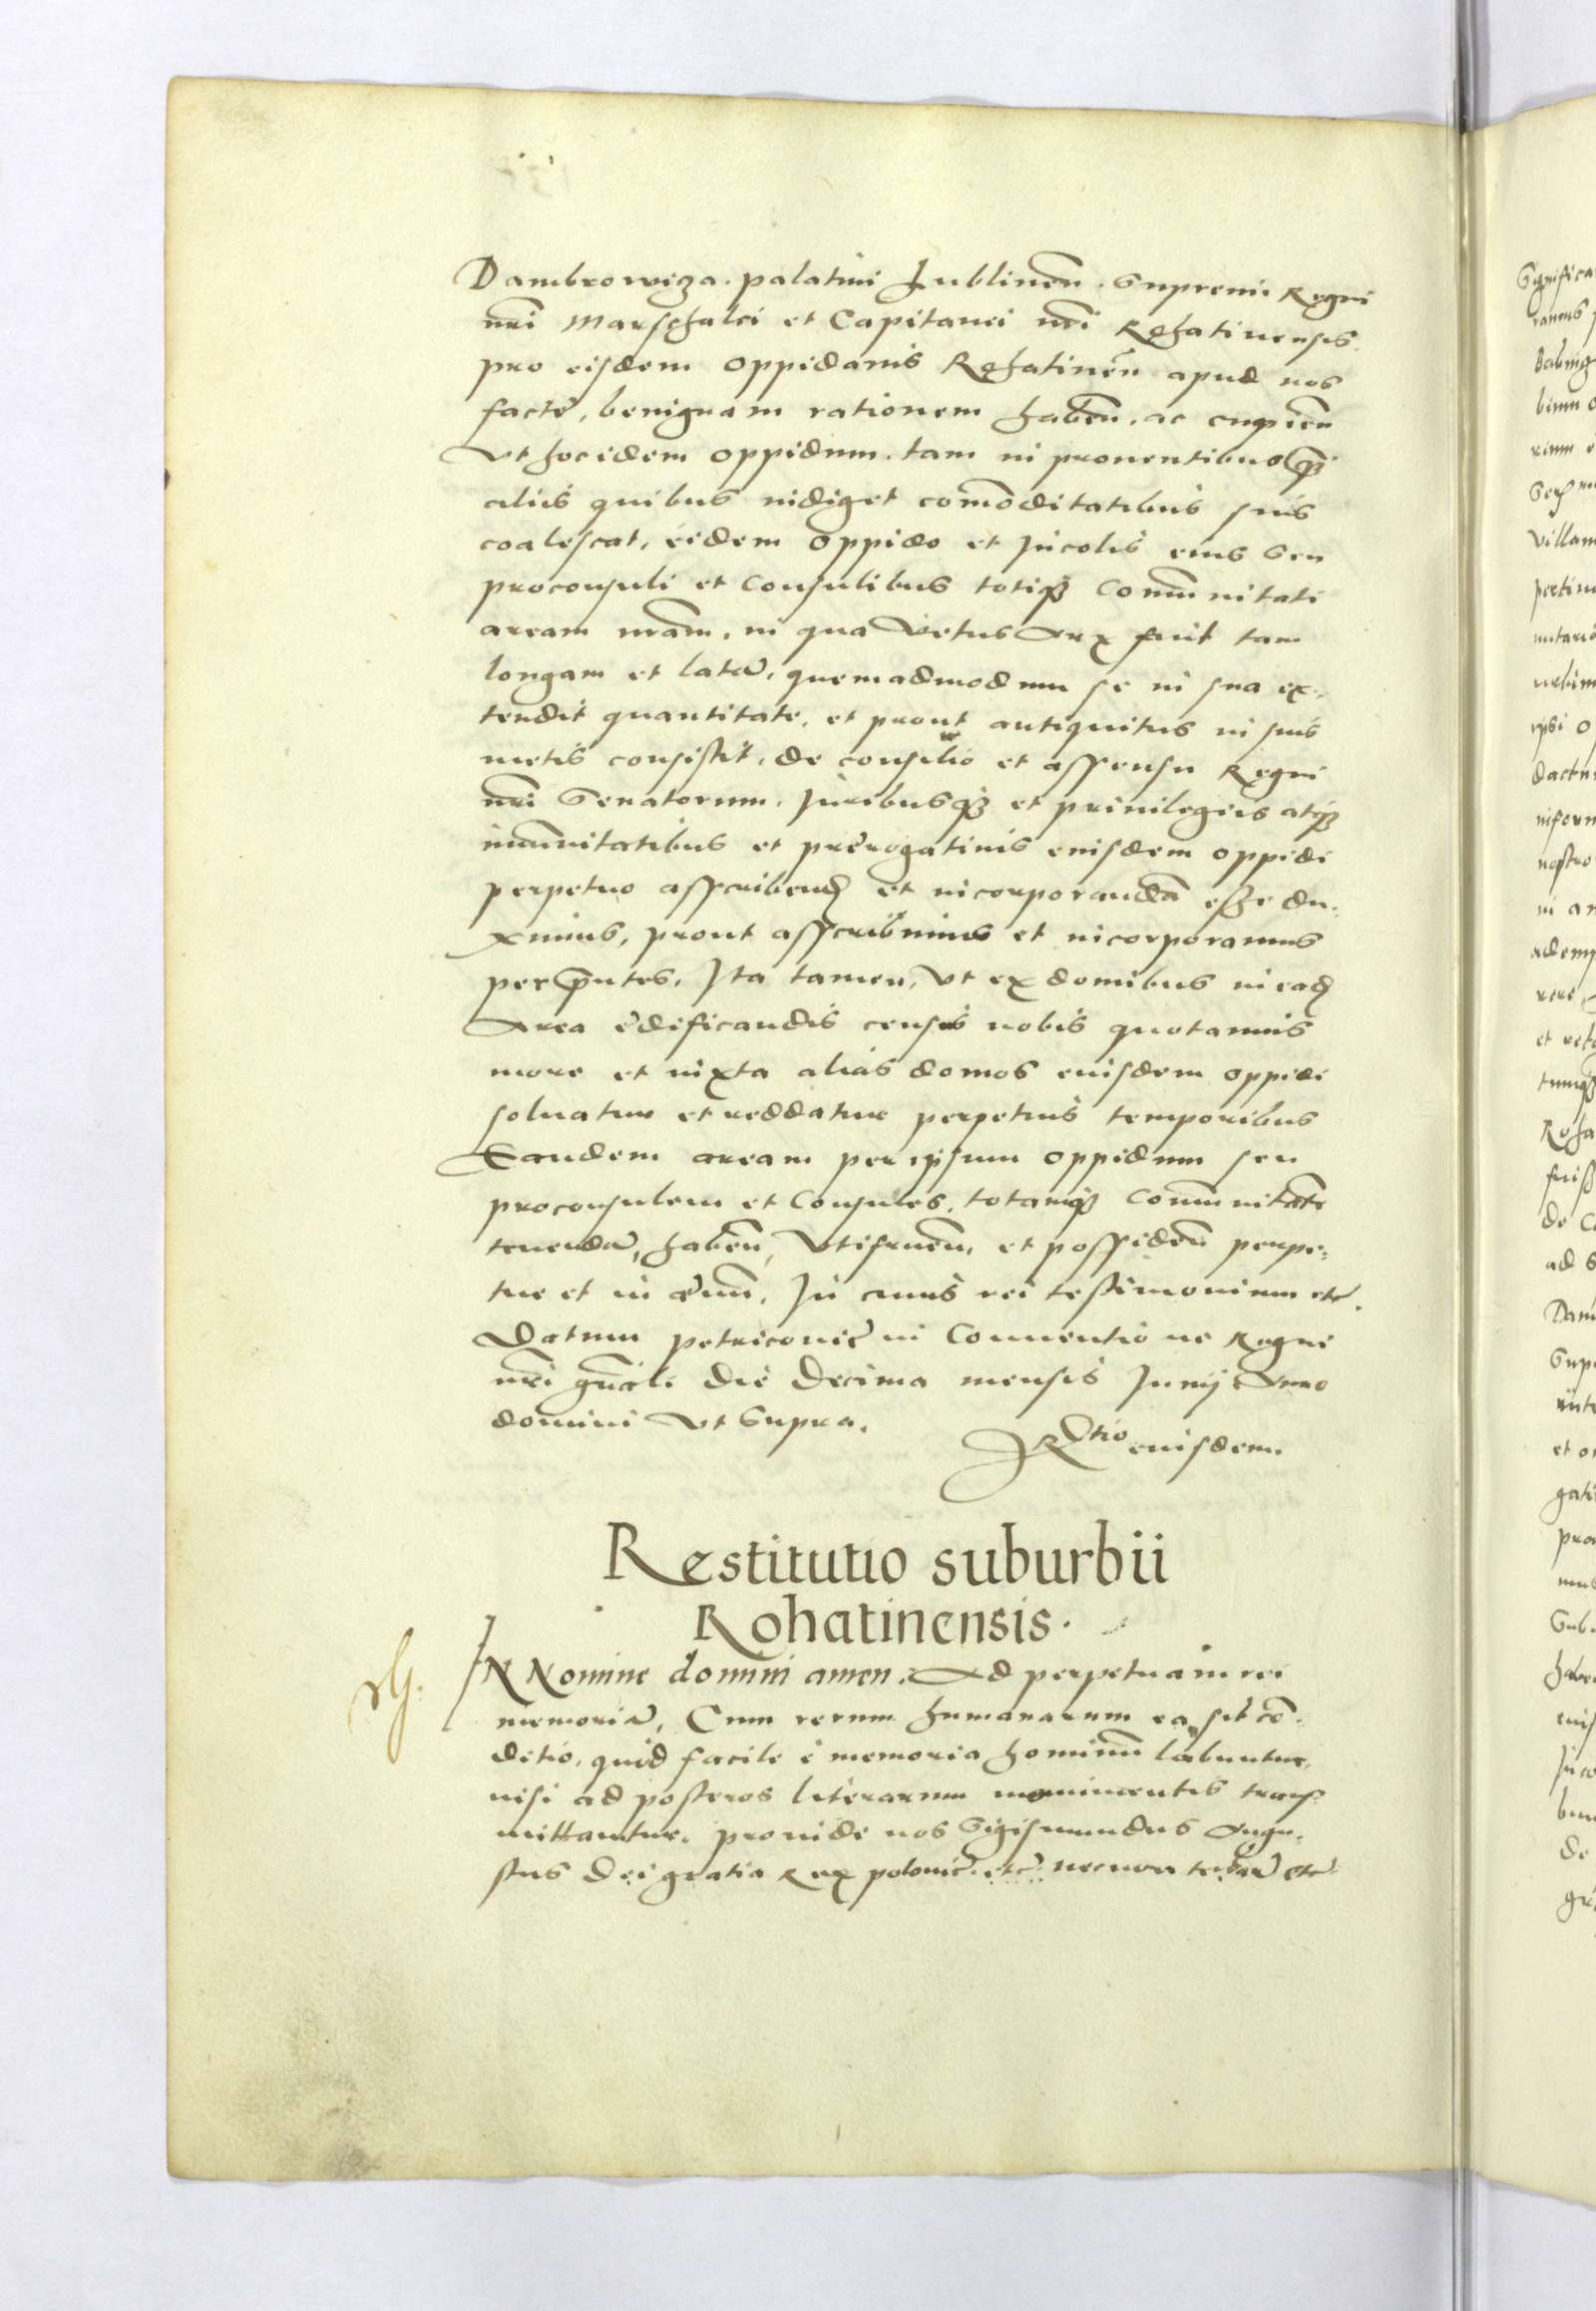 Dambrowiza. palatini Lublinen̄. Supremi Regni
nr̄i Marschalci et Capitanei nr̄i Rohatinensis
pro eisdem oppidanis Rohatinen̄ apud nos
factę, benignam rationem haben̄. ac cupien̄
Vt hoc idem oppidum. tam in prouentibus q̄
aliis quibus indiget com̄oditatibus suis
coalescat, eidem oppido et Incolis eius seu
proconsuli et Consulibus totiqȝ Com̄unitati
aream nr̄am, in qua Vetus Arx fuit tam
longam et latā, quemadmodum se in sua ex-
tendit quantitate, et prout antiquitus in suis
metis consistit, de consilio et assensu Regni
nr̄i Senatorum, Juribusqȝ et priuilegiis atqȝ
im̄unitatibus et prerogatiuis eiusdem oppidi
perpetuo asscribend et incorporandā esse du-
ximus, prout asscribimus et incorporamus
per p̄ntes, Ita tamen, Vt ex domibus in ead
Area ędificandis census nobis quotannis
more et iuxta alias domos eiusdem oppidi
soluatur et reddatur perpetuis temporibus
Eandem aream per ipsum oppidum seu
proconsulem et Consules, totamqȝ Com̄unitatē
tenendā, haben̄, Vtifruen̄, et possiden̄ perpe-
tue et in ęuū. In cuius rei testimonium etc.
Datum petricovię in Conuentio ne Regni
nr̄i gn̄ali die Decima mensis Junij Anno
domini Vt Supra.
Rtio eiusdem
Restitutio suburbii
Rohatinensis.
IN Nomine domini amen. Ad perpetuam rei
memoriā, Cum rerum humanarum ea sit cō-
ditio, quod facile è memoria hominū labuntur,
nisi ad posteros literarum monimentis trans-
mittantur. proinde nos Sigismundus Augu-
stus Dei gratia Rex polonię etc. necnon terrarū etc